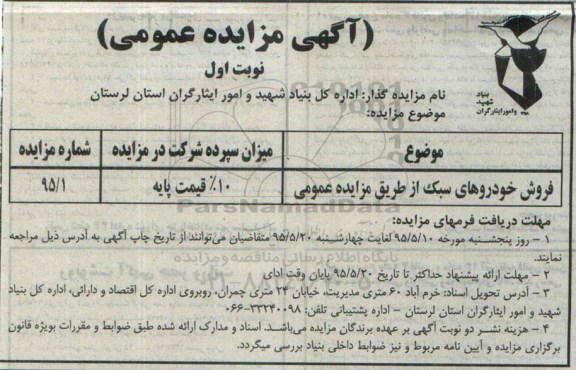 (آگهی مزایده عمومی)
نوبت اول
بنیاد
شهید
و امور ایثارگران
نام مزایده گذار: اداره کل بنیاد شهید و امور ایثارگران استان لرستان
موضوع مزایده:
موضوع میزان سپرده شرکت در مزایده شماره مزایده
فروش خودروهای سبک از طریق مزایده عمومی ۱۰٪ قیمت پایه ۹۵/۱
ParsNamadData
مهلت دریافت فرمهای مزایده:
۱ – روز پنجشنبه مورخه ۹۵/۵/۱۰ لغایت چهارشنبه ۹۵/۵/۲۰ متقاضیان می‌توانند از تاریخ چاپ آگهی به آدرس ذیل مراجعه
نمایند.
پایگاه اطلاع رسانی مناقصه و مزایده
۲ – مهلت ارائه پیشنهاد حداکثر تا تاریخ ۹۵/۵/۲۰ پایان وقت اداری
۳ – آدرس تحویل اسناد: خرم آباد ۶۰ متری مدیریت، خیابان ۲۴ متری چمران، روبروی اداره کل اقتصاد و دارائی، اداره کل بنیاد
شهید و امور ایثارگران استان لرستان – اداره پشتیبانی تلفن: ۳۳۲۴۰۰۹۸-۰۶۶
۴ – هزینه نشر دو نوبت آگهی بر عهده برندگان مزایده می‌باشد. اسناد و مدارک ارائه شده طبق ضوابط و مقررات بویژه قانون
برگزاری مزایده و آیین نامه مربوط و نیز ضوابط داخلی بنیاد بررسی میگردد.